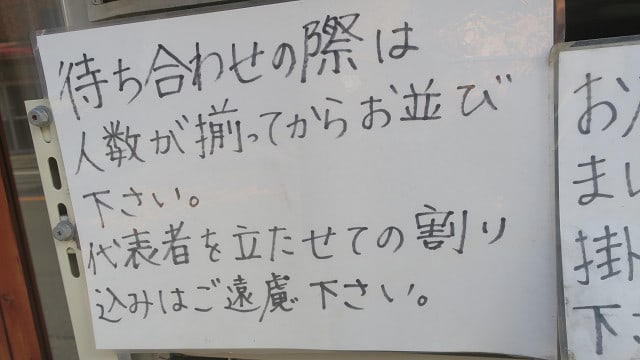 待ち合わせの際は
人数が揃ってからお並び
下さい。
代表者を立たせての割り
込みはご遠慮下さい。
お
まい
掛
下さ